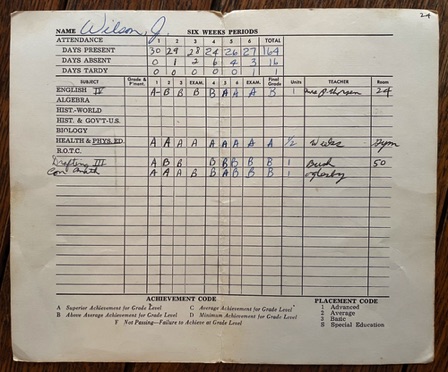 24
NAME Wilson, J. SIX WEEKS PERIODS
ATTENDANCE 1 2 3 4 5 6 TOTAL
DAYS PRESENT 30 29 28 24 26 27 164
DAYS ABSENT 0 1 2 6 4 3 16
DAYS TARDY 0 0 0 0 0 1 1
SUBJECT Grade & P'ment. 1 2 3 EXAM. 4 5 6 EXAM. Final Grade Units TEACHER Room
ENGLISH IV A- B B B B A A A B 1 Mrs 24
ALGEBRA
HIST.-WORLD
HIST. & GOV'T-U.S.
BIOLOGY
HEALTH & PHYS. ED. A A A A A A A A A 1/2 Gym
R.O.T.C.
Drafting III A B B B B B B B 1 Bush 50
Con. Math A A A B B A B B B 1
ACHIEVEMENT CODE PLACEMENT CODE
A Superior Achievement for Grade Level C Average Achievement for Grade Level 1 Advanced
B Above Average Achievement for Grade Level D Minimum Achievement for Grade Level 2 Average
F Not Passing—Failure to Achieve at Grade Level 3 Basic
S Special Education